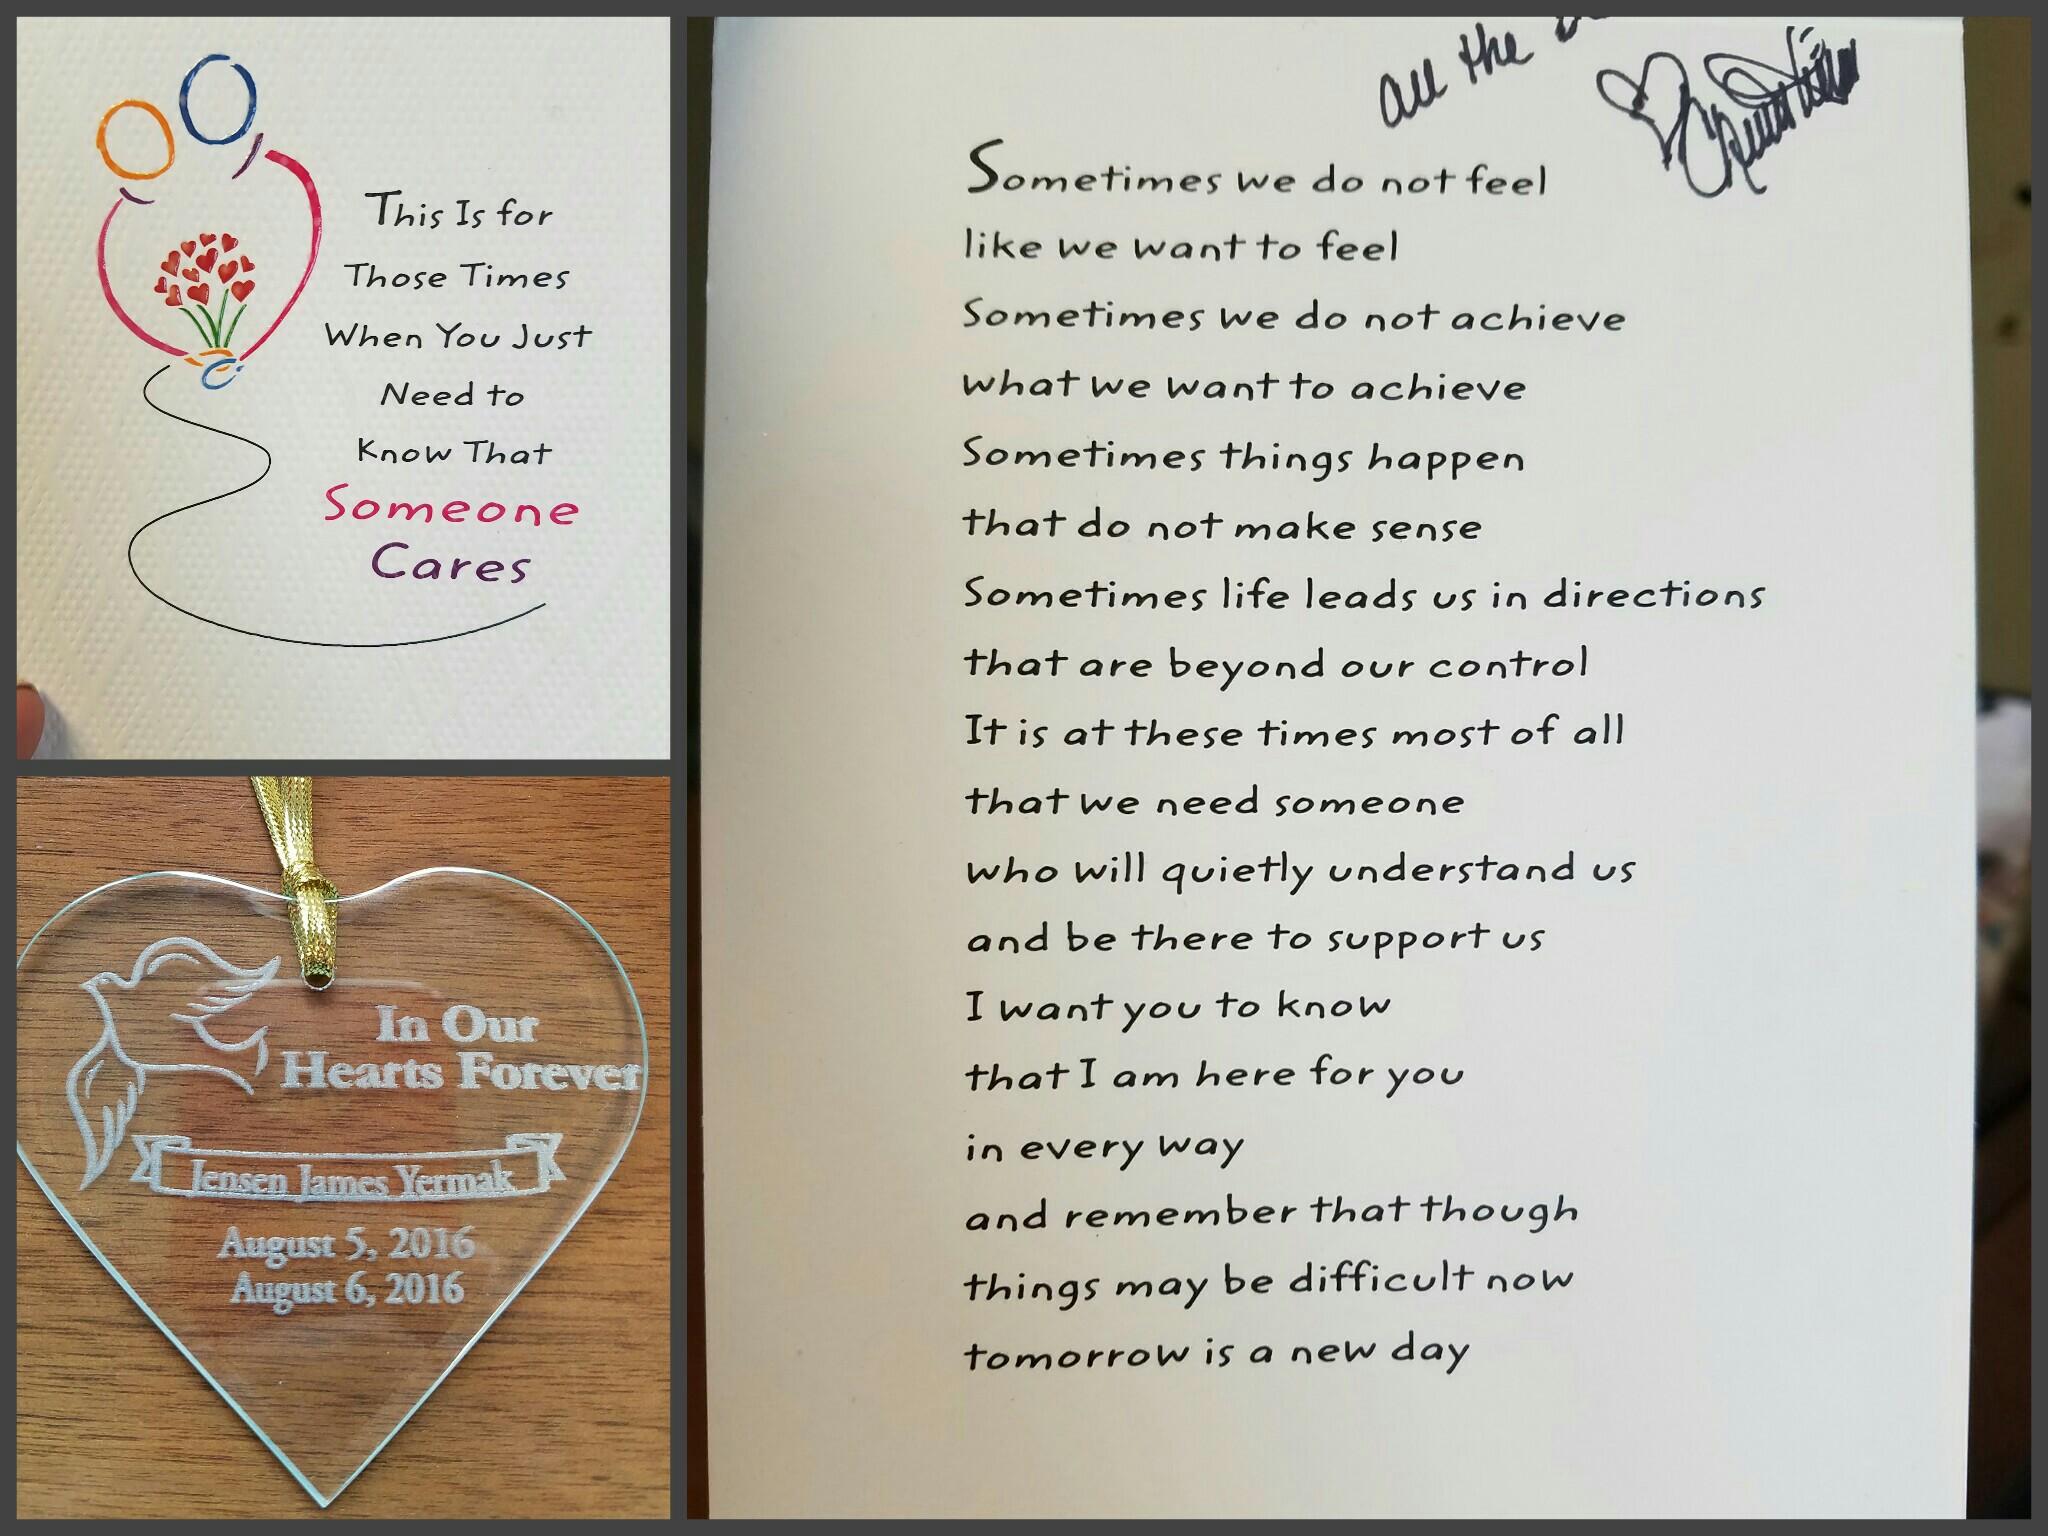 This Is for
Those Times
When You Just
Need to
Know That
Someone
Cares
In Our
Hearts Forever
Jensen James Yermak
August 5, 2016
August 6, 2016
all the
Sometimes we do not feel
like we want to feel
Sometimes we do not achieve
what we want to achieve
Sometimes things happen
that do not make sense
Sometimes life leads us in directions
that are beyond our control
It is at these times most of all
that we need someone
who will quietly understand us
and be there to support us
I want you to know
that I am here for you
in every way
and remember that though
things may be difficult now
tomorrow is a new day